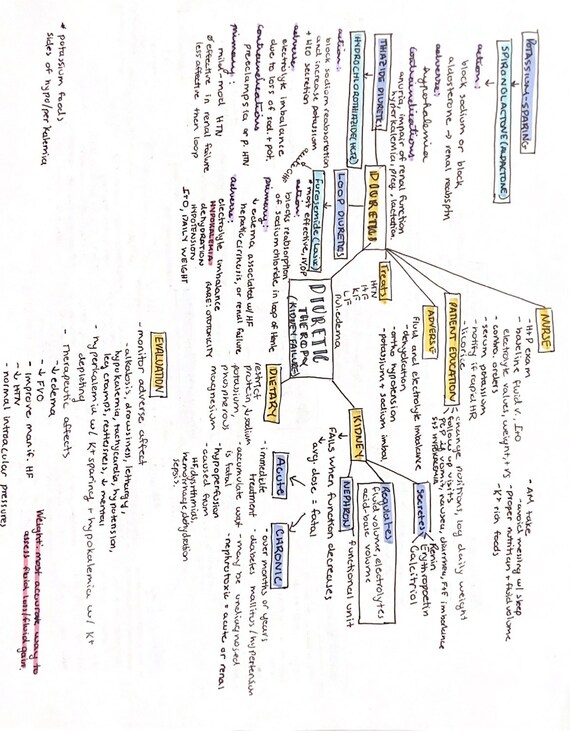 POTASSIUM-SPARING
SPIRONOLACTONE (ALDACTONE)
action:
block sodium or block
aldosterone → renal reabsptn
adverse:
hyperkalemia
Contraindications
anuria, impair of renal function
hyperkalemia, preg, lactation
THIAZIDE DIURETIC
HYDROCHLOROTHIAZIDE (HCTZ)
action:
block sodium reabsorption
and increase potassium
H2O secretion
adverse:
electrolyte imbalance
due to loss of sod. + pot.
Contraindications
preeclampsia or p. HTN
primary:
mild-mod HTN
∅ effective in renal failure
less affective then loop
DIURETIC
LOOP DIURETICS
Furosemide (Lasix)
*most effective, IV/OP
action:
blocks reabsorption
of sodium chloride in loop of Henle
primary:
↓ edema associated w/ HF
hepatic cirrhosis, or renal failure
adverse:
electrolyte imbalance
HYPOKALEMIA
dehydration
HYPOTENSION
RARE: OTOTOXICITY
I+O, DAILY WEIGHT
DIURETIC
THERAPY
(KIDNEY FAILURE)
Treats
HTN
HF
KF
LF
pul.edema
ADVERSE
fluid and electrolyte imbalance
- dehydration
- ortho. hypotension
- potassium + sodium imbal
PATIENT EDUCATION
- change positions, log daily weight
- follow up visits
- licorice
- notify if rapid HR
NURSE
- H+P exam
- baseline fluid v. I+O
electrolyte values, weight, +vs
- contra. orders
- serum potassium
- AM take
- avoid messing w/ sleep
- proper nutrition + fluid volume
- K+ rich foods
KIDNEY
Secretes
Renin
Erythropoetin
Calcitrial
Regulates
fluid volume, electrolytes
acid-base volume
NEPHRON
functional unit
Fails when function decreases
avg. dose = fatal
DIETARY
restrict
protein, ↓ sodium
potassium,
phosphorous
magnesium
Acute
- immediate
treatment
- accumulate wast
is fatal
- caused from
hypoperfusion
HF, dysrhythmias
hemorrhage, dehydration
sepsis
CHRONIC
- over months or years
- diabetes mellitus / hypertension
- may be undiagnosed
- nephrotoxic = acute or renal
EVALUATION
- monitor adverse affect
- alkalosis, drowsiness, lethargy,
hypokalemia, tachycardia, hypotension,
leg cramps, restlessness, ↓ mental
- hyperkalemia w/ K+ sparing + hypokalemia w/ K+
depleting
- Therapeutic affects
↓ edema
- ↓ FVO
- improve manif. HF
- ↓ HTN
- normal intraocular pressures
Weight: most accurate way to
assess fluid loss/fluid gain.
* potassium foods
sides of hypo/per kalemia